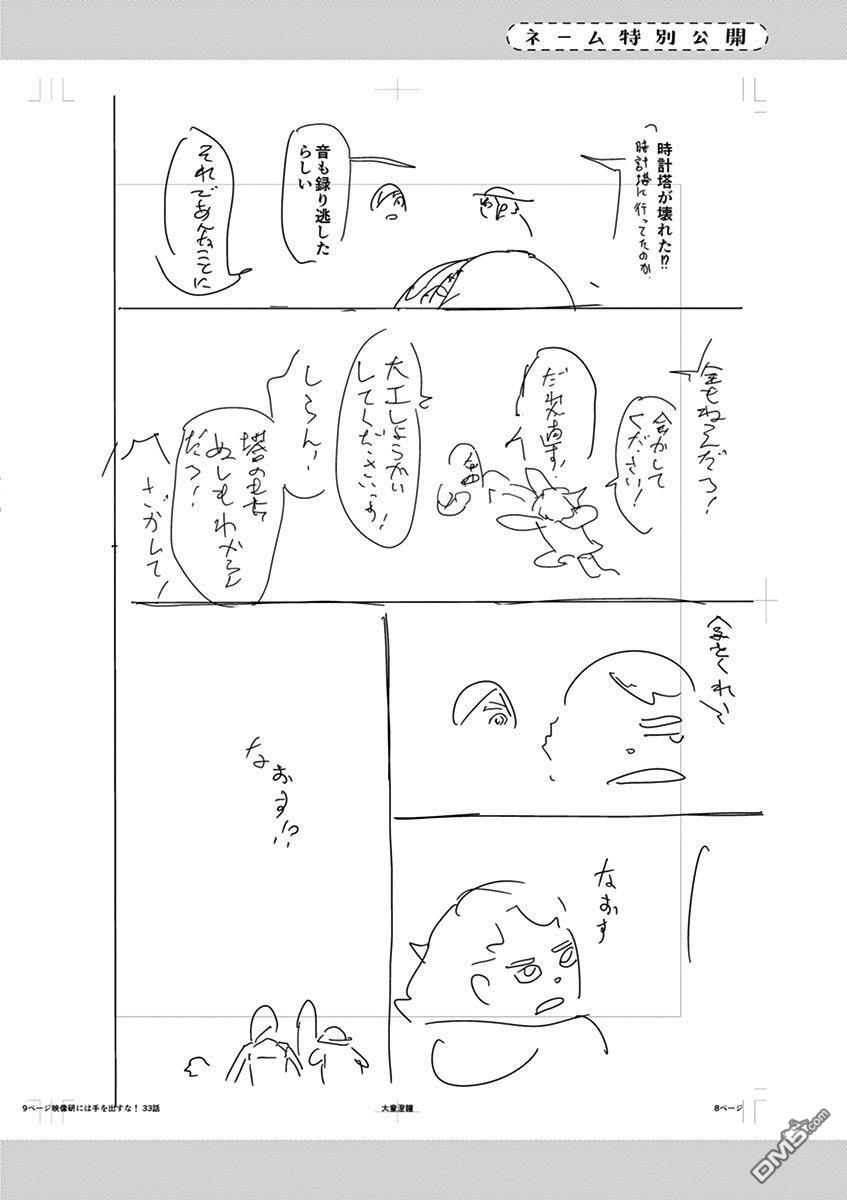 ネーム特別公開
時計塔が壊れた!?
時計塔に行ってたのか
音も録り逃した
らしい
それであんなことに
だれが直す!
大工しょうかい
してください!
しらん!
塔の
ぬしもわからん
だろ!
さがして!
なおす
なおす!?
9ページ映像研には手を出すな! 33話
大童澄瞳
8ページ
DM5.com